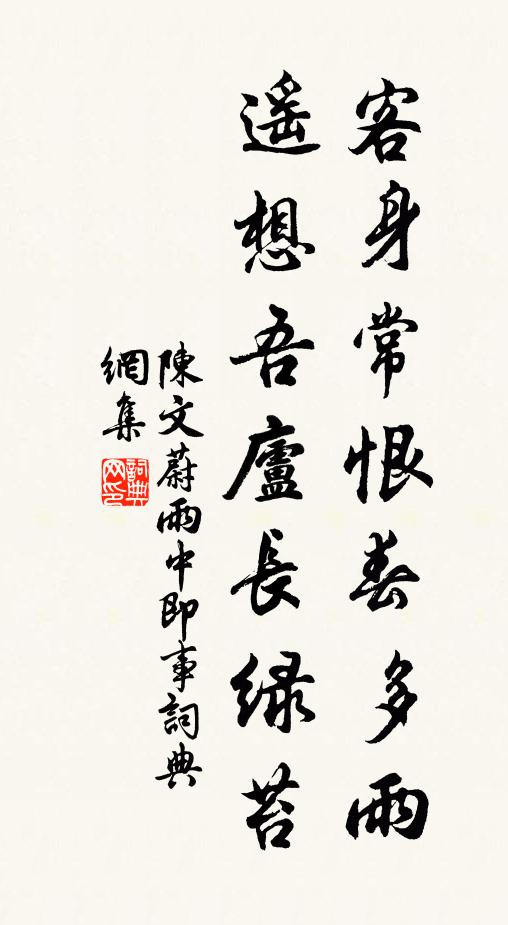 客身常恨春多雨
遥想吾廬長緑苔
陳文蔚雨中即事詞典
網集
詞典网印